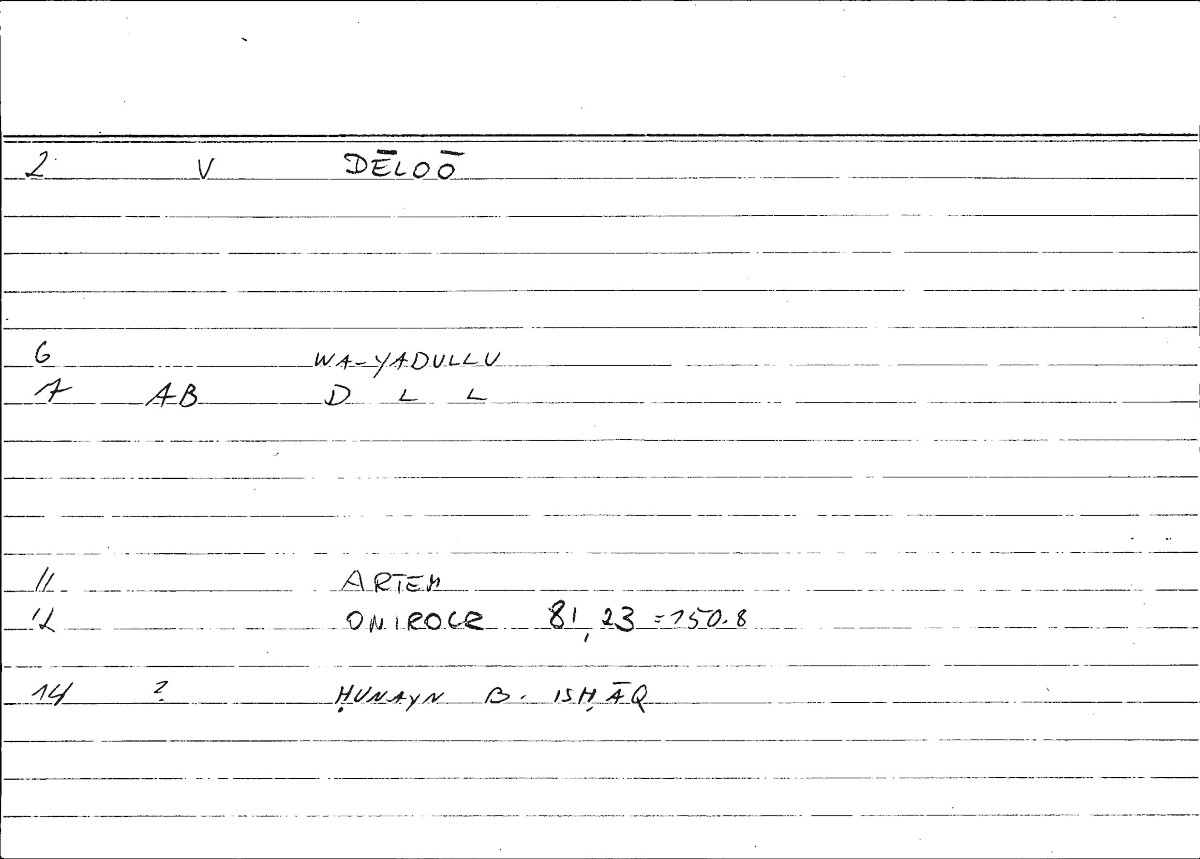 2 V DĒLOŌ
6 WA-YADULLU
7 AB D L L
11 ARTEM
12 ONIROCR 81,23 =150.8
14 ? ḤUNAYN B. ISḤĀQ